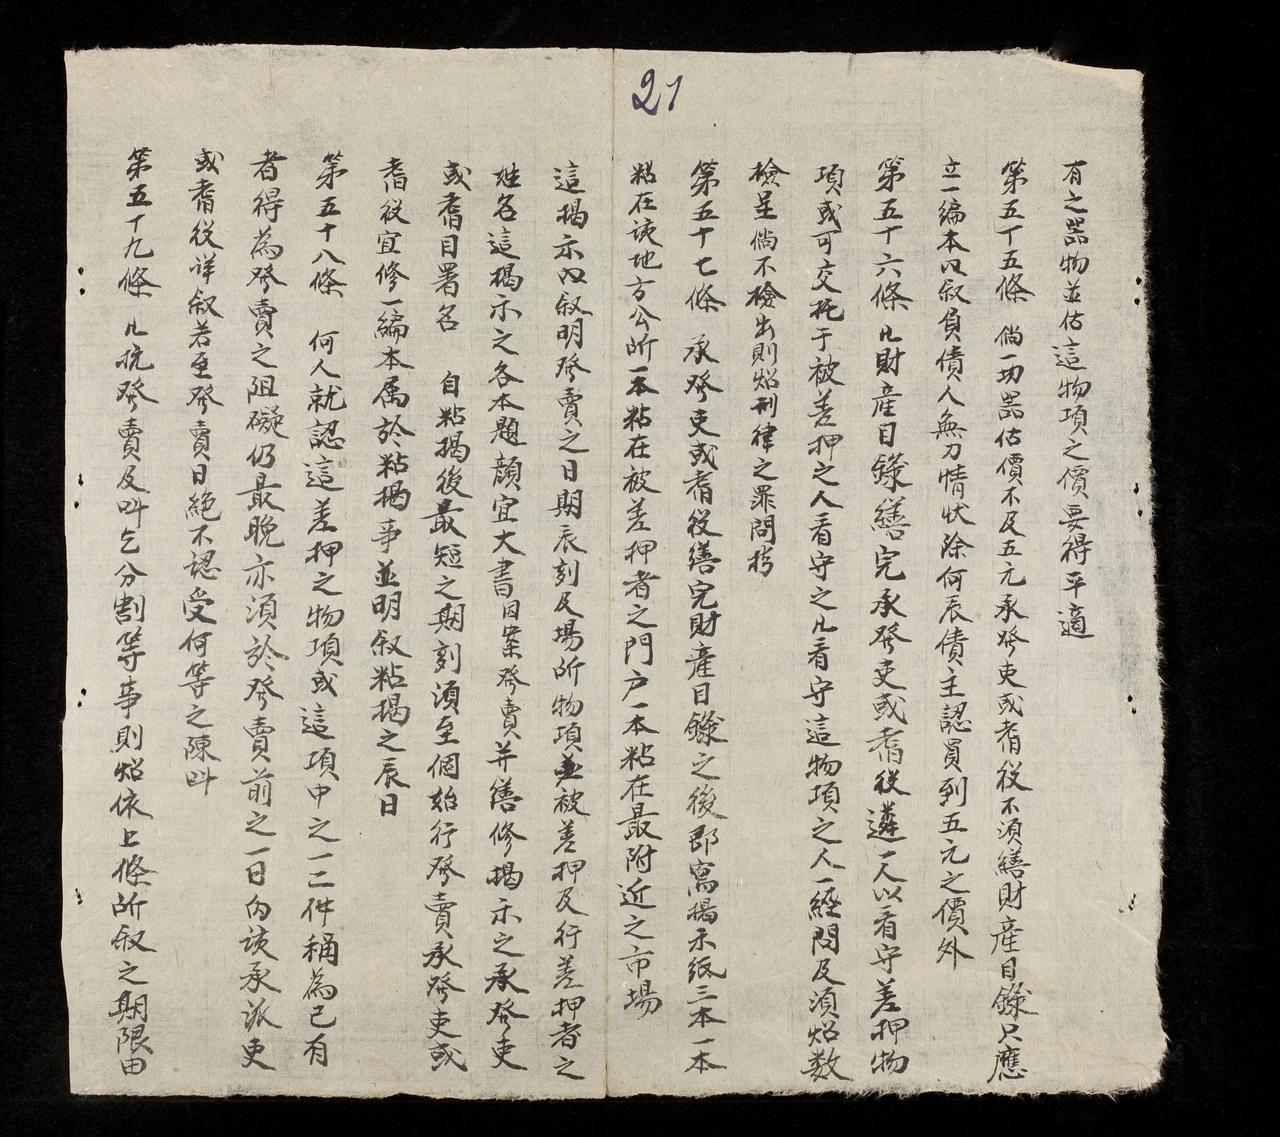 21
有之器物並估這物項之價要得平適
第五十五條 倘一切器估價不及五元承發吏或耆役不須繕財產目錄只應
立一編本以敘負債人無力情狀除何辰債主認員到五元之價外
第五十六條 凡財產目錄繕完承發吏或耆役遴一人以看守差押物
項或可交托于被差押之人看守之凡看守這物項之人一經問及須炤数
檢呈倘不檢出則炤刑律之罪問拷
第五十七條 承發吏或耆役繕完財產目錄之後即寫揭示紙三本一本
粘在該地方公所一本粘在被差押者之門户一本粘在最附近之市場
這揭示內敘明發賣之日期辰刻及場所物項並被差押及行差押者之
姓名這揭示之各本題顏宜大書因案發賣并繕修揭示之承發吏
或耆目署名 自粘揭後最短之期刻須至個始行發賣承發吏或
耆役宜修一編本属於粘揭事並明敘粘揭之辰日
第五十八條 何人就認這差押之物項或這項中之一二件稱為己有
者得為發賣之阻礙仍最晚亦須於發賣前之一日內該承派吏
或耆役详敘若至發賣日絶不認受何等之陳叫
第五十九條 凡抗發賣及叫乞分割等事則炤依上條所敘之期限由